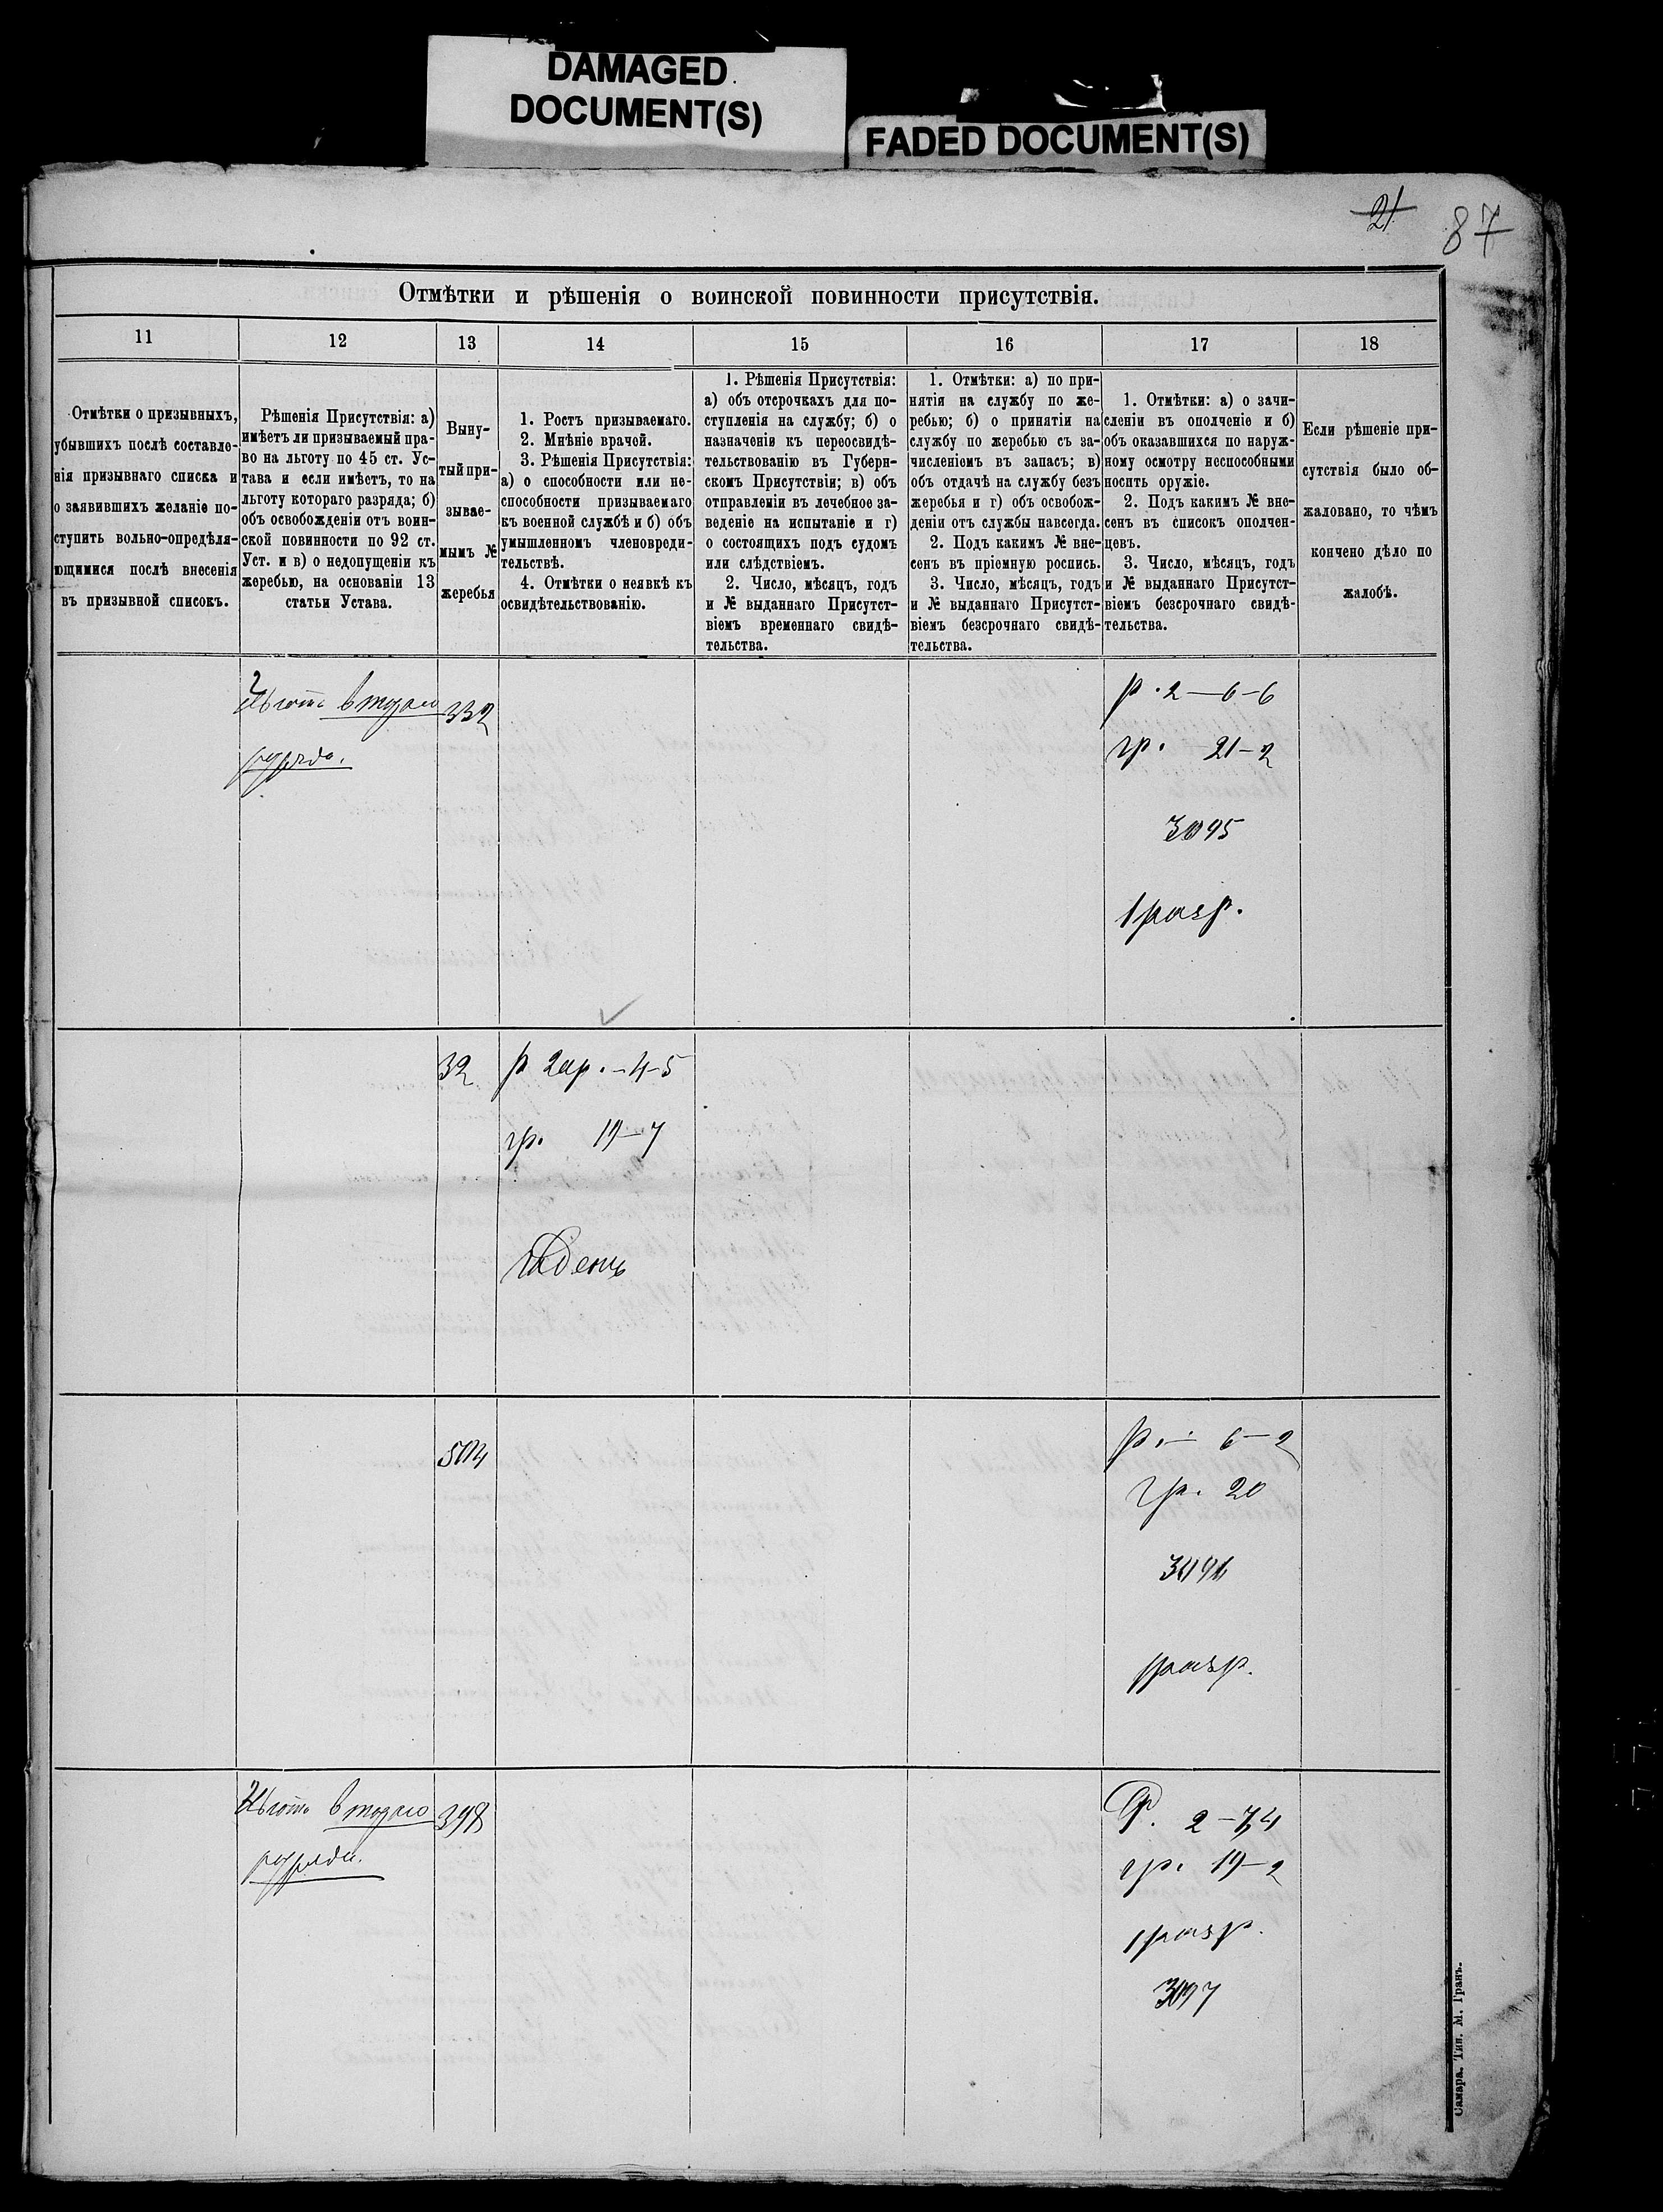 DAMAGED
DOCUMENT(S)
FADED DOCUMENT(S)
21
87
Отмѣтки и рѣшенія о воинской повинности присутствія.
11
12
13
14
15
16
17
18
Отмѣтки о призывныхъ,
убывшихъ послѣ составле-
нія призывнаго списка и
о заявившихъ желаніе по-
ступить вольно-опредѣля-
ющимися послѣ внесенія
въ призывной списокъ.
Рѣшенія Присутствія: а)
имѣетъ ли призываемый пра-
во на льготу по 45 ст. Ус-
тава и если имѣетъ, то на
льготу котораго разряда; б)
объ освобожденіи отъ воин-
ской повинности по 92 ст.
Уст. и в) о недопущеніи къ
жеребью, на основаніи 13
статьи Устава.
Выну-
тый при-
зывае-
мымъ №
жеребья
1. Ростъ призываемаго.
2. Мнѣніе врачей.
3. Рѣшенія Присутствія:
а) о способности или не-
способности призываемаго
къ военной службѣ и б) объ
умышленномъ членовреди-
тельствѣ.
4. Отмѣтки о неявкѣ къ
освидѣтельствованію.
1. Рѣшенія Присутствія:
а) объ отсрочкахъ для по-
ступленія на службу; б) о
назначеніи къ переосвидѣ-
тельствованію въ Губерн-
скомъ Присутствіи; в) объ
отправленіи въ лечебное за-
веденіе на испытаніе и г)
о состоящихъ подъ судомъ
или слѣдствіемъ.
2. Число, мѣсяцъ, годъ
и № выданнаго Присутст-
віемъ временнаго свидѣ-
тельства.
1. Отмѣтки: а) по при-
нятія на службу по же-
ребью; б) о принятіи на
службу по жеребью съ за-
численіемъ въ запасъ; в)
объ отдачѣ на службу безъ
жеребья и г) объ освобож-
деніи отъ службы навсегда.
2. Подъ какимъ № вне-
сенъ въ пріемную роспись.
3. Число, мѣсяцъ, годъ
и № выданнаго Присутст-
віемъ безсрочнаго свидѣ-
тельства.
1. Отмѣтки: а) о зачи-
сленіи въ ополченіе и б)
объ оказавшихся по наруж-
ному осмотру неспособными
носить оружіе.
2. Подъ какимъ № вне-
сенъ въ списокъ ополчен-
цевъ.
3. Число, мѣсяцъ, годъ
и № выданнаго Присутст-
віемъ безсрочнаго свидѣ-
тельства.
Если рѣшеніе при-
сутствія было об-
жаловано, то чѣмъ
кончено дѣло по
жалобѣ.
Льгота втораго
разряда.
332
р. 2—6—6
гр. —21—2
3095
1 разр.
32
р 2 ар. —4—5
гр. 19—7
Годенъ
504
р. — 6—2
гр. 20
3096
1 разр.
Льгота втораго
разряда.
398
Р. 2—7,4
гр. 19—2
1 разр.
3097
Самара. Тип. М. Гранъ.